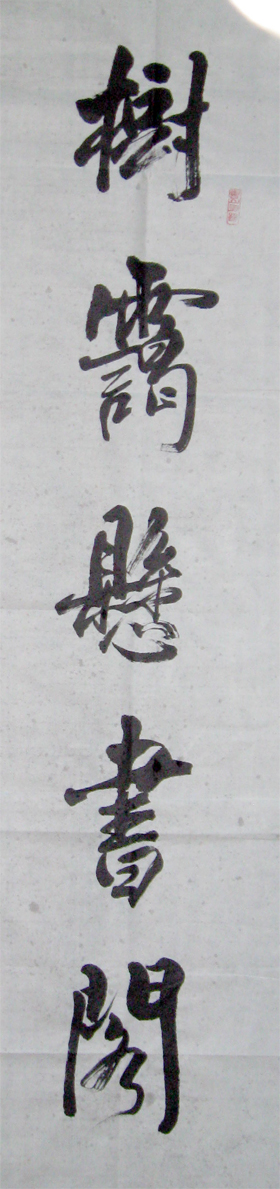 樹靄懸書閣